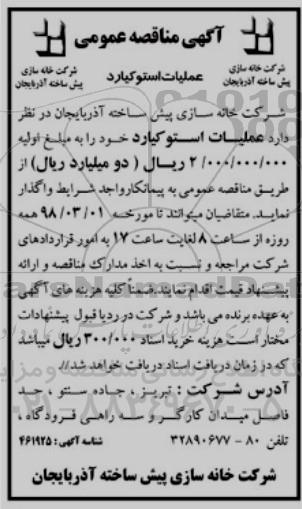 آگهی مناقصه عمومی
شرکت خانه سازی
پیش ساخته آذربایجان
عملیات استوکیارد
شرکت خانه سازی
پیش ساخته آذربایجان
شرکت خانه سازی پیش ساخته آذربایجان در نظر
دارد عملیات استوکیارد خود را به مبلغ اولیه
۲/۰۰۰/۰۰۰/۰۰۰ ریال ( دو میلیارد ریال) از
طریق مناقصه عمومی به پیمانکار واجد شرایط واگذار
نماید. متقاضیان میتوانند تا مورخه ۹۸/۰۳/۰۱ همه
روزه از ساعت ۸ لغایت ساعت ۱۷ به امور قراردادهای
شرکت مراجعه و نسبت به اخذ مدارک مناقصه و ارائه
پیشنهاد قیمت اقدام نمایند. ضمناً کلیه هزینه های آگهی
به عهده برنده می باشد و شرکت در رد یا قبول پیشنهادات
مختار است. هزینه خرید اسناد ۳۰۰/۰۰۰ ریال میباشد
که در زمان دریافت اسناد دریافت خواهد شد//.
آدرس شرکت : تبریز ، جاده سنتو ، حد
فاصل میدان کارگر و سه راهی فرودگاه ،
تلفن ۸۰ - ۳۲۸۹۰۶۷۷
شناسه آگهی: ۴۶۱۹۲۵
شرکت خانه سازی پیش ساخته آذربایجان